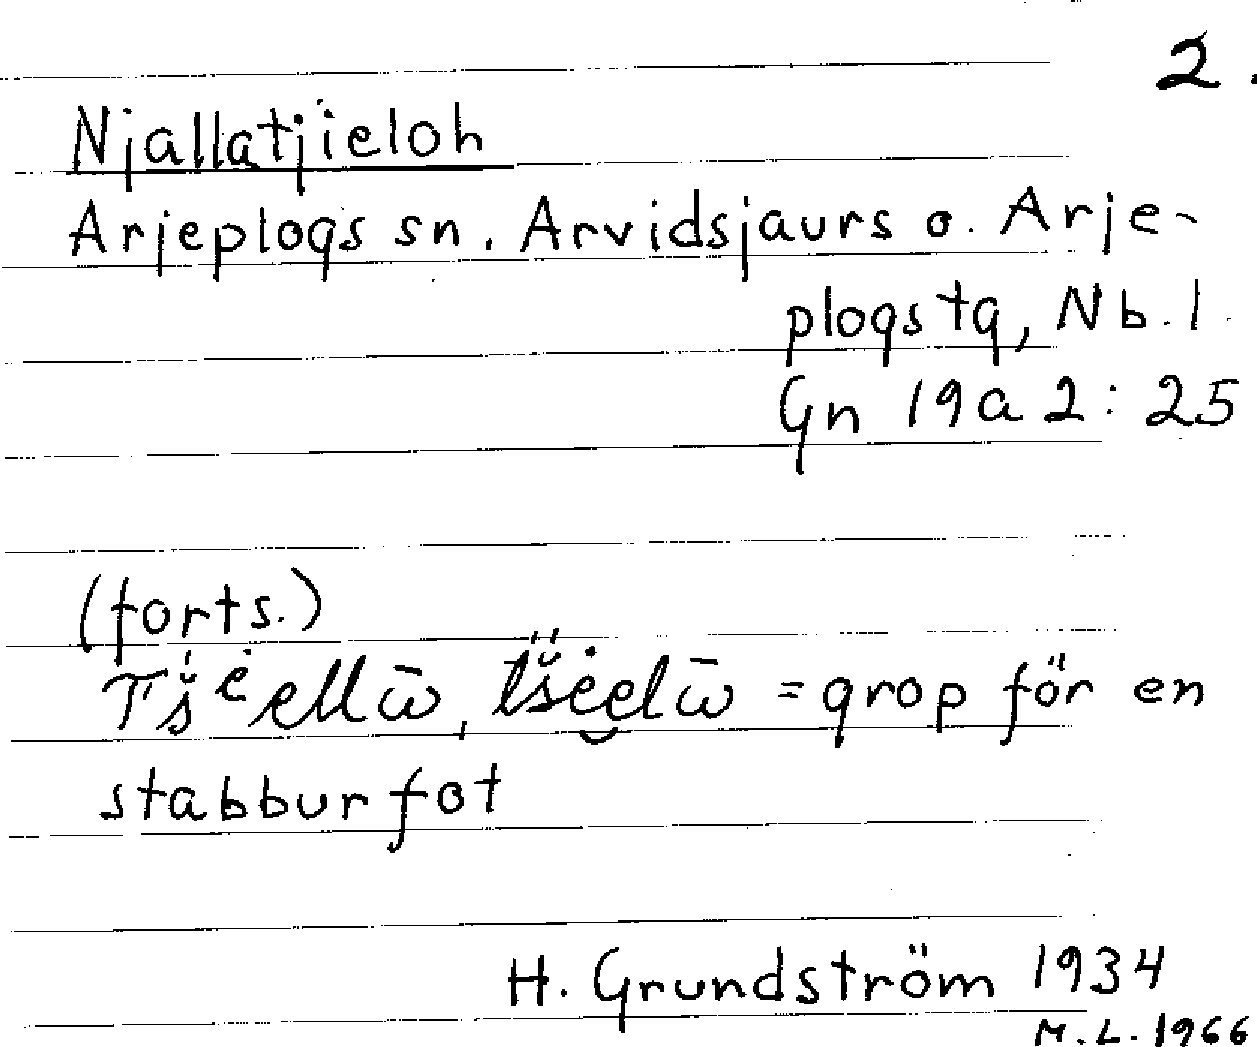 2.
Njallatjieloh
Arjeplogs sn. Arvidsjaurs o. Arje-
plogs tg, Nb. l.
Gn 19a 2:25
(forts.)
= grop för en
stabburfot
H. Grundström 1934
M.L. 1966